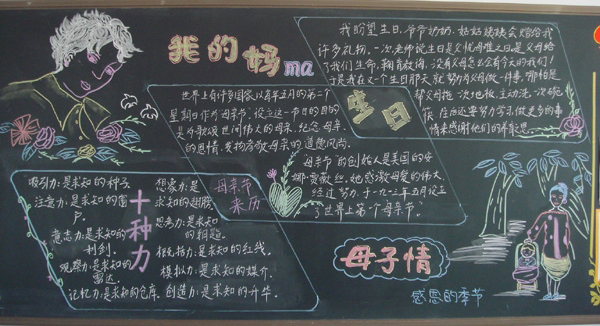 我的妈ma
我盼望生日,爷爷奶奶、姑姑姨姨会赠给我
许多礼物。一次,老师说生日是父忧母难之日,是父母给
了我们生命,抚育教诲,没有父母怎么会有今天的我们!
于是我在又一个生日那天,就努力为父母做一件事,哪怕是
帮父母拖一次地板,主动洗一次碗
筷,在后还要努力学习,做更多的事
情来感谢他们的养育之恩。
生日
世界上有许多国家,以每年五月的第二个
星期日作为母亲节,设立这一节日的目的
是为歌颂世间伟大的母亲,纪念母亲
的恩情,发扬孝敬母亲的道德风尚。
母亲节的创始人是美国的安
娜·贾薇丝,她感数母爱的伟大,
经过努力,于一九一三年五月设立
了世界上第一个母亲节。
母亲节
来历
十种力
吸引力:是求知的种子
注意力:是求知的窗
户
意志力:是求知的
利剑。
观察力:是求知的
雷达。
记忆力:是求知的仓库。
想象力:是
求知的翅膀
思考力:是求知
的钥题。
模拟力:是求知的媒介。
创造力:是求知的升华。
母子情
感恩的季节